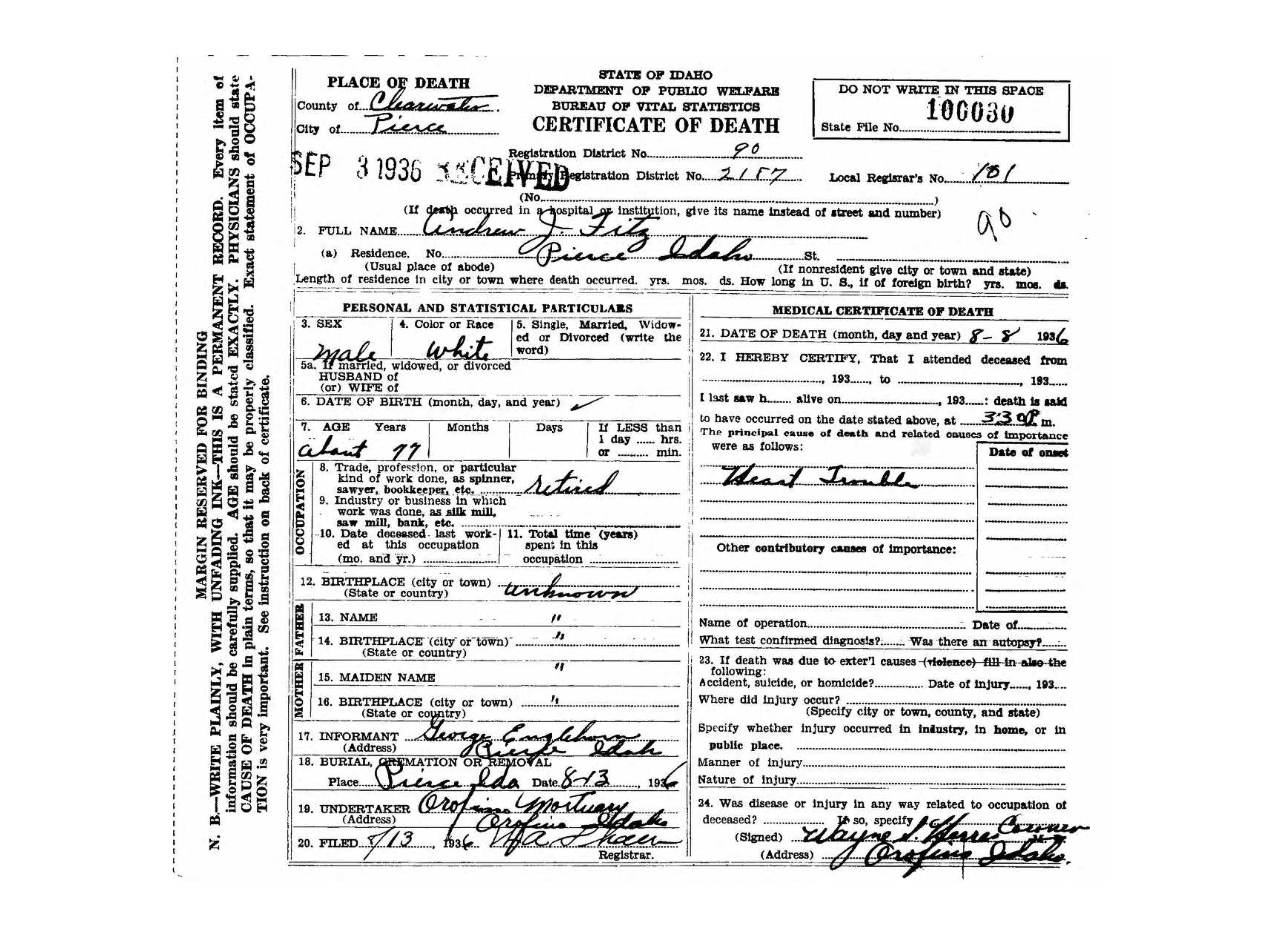 MARGIN RESERVED FOR BINDING
N. B.—WRITE PLAINLY, WITH UNFADING INK—THIS IS A PERMANENT RECORD. Every item of
information should be carefully supplied. AGE should be stated EXACTLY. PHYSICIANS should state
CAUSE OF DEATH in plain terms, so that it may be properly classified. Exact statement of OCCUPA-
TION is very important. See instruction on back of certificate.
PLACE OF DEATH
County of Clearwater.
City of Pierce
STATE OF IDAHO
DEPARTMENT OF PUBLIC WELFARE
BUREAU OF VITAL STATISTICS
CERTIFICATE OF DEATH
DO NOT WRITE IN THIS SPACE
100030
State File No.
SEP 3 1936 RECEIVED
Registration District No. 90
Primary Registration District No. 2157
Local Regisrar's No. 181
(No. )
(If death occurred in a hospital or institution, give its name instead of street and number)
90
2. FULL NAME Andrew J. Fitz
(a) Residence. No. Pierce Idaho St.
(Usual place of abode) (If nonresident give city or town and state)
Length of residence in city or town where death occurred. yrs. mos. ds. How long in U. S., if of foreign birth? yrs. mos. ds.
PERSONAL AND STATISTICAL PARTICULARS
3. SEX Male
4. Color or Race White
5. Single, Married, Widow-
ed or Divorced (write the
word)
5a. If married, widowed, or divorced
HUSBAND of
(or) WIFE of
6. DATE OF BIRTH (month, day, and year)
7. AGE Years Months Days If LESS than
1 day ...... hrs.
or ......... min.
about 77
OCCUPATION
8. Trade, profession, or particular
kind of work done, as spinner,
sawyer, bookkeeper, etc. retired
9. Industry or business in which
work was done, as silk mill,
saw mill, bank, etc.
10. Date deceased last work-
ed at this occupation
(mo. and yr.)
11. Total time (years)
spent in this
occupation
12. BIRTHPLACE (city or town) unknown
(State or country)
FATHER
13. NAME "
14. BIRTHPLACE (city or town) "
(State or country)
MOTHER
15. MAIDEN NAME "
16. BIRTHPLACE (city or town) "
(State or country)
17. INFORMANT George Englehorn
(Address) Pierce Idah
18. BURIAL, CREMATION OR REMOVAL
Place Pierce Ida Date 8-13, 1936
19. UNDERTAKER Orofino Mortuary
(Address) Orofino Idaho
20. FILED 8/13, 1936
Registrar.
MEDICAL CERTIFICATE OF DEATH
21. DATE OF DEATH (month, day and year) 8-8 1936
22. I HEREBY CERTIFY, That I attended deceased from
, 193......, to , 193......
I last saw h........ alive on , 193......: death is said
to have occurred on the date stated above, at 330 P. m.
The principal cause of death and related causes of importance
were as follows:
Date of onset
Heart Trouble
Other contributory causes of importance:
Name of operation Date of
What test confirmed diagnosis? Was there an autopsy?
23. If death was due to exter'l causes (violence) fill in also the
following:
Accident, suicide, or homicide? Date of injury......, 193....
Where did injury occur?
(Specify city or town, county, and state)
Specify whether injury occurred in industry, in home, or in
public place.
Manner of injury
Nature of injury
24. Was disease or injury in any way related to occupation of
deceased? If so, specify
(Signed) Wayne Coroner
(Address) Orofino Idaho.